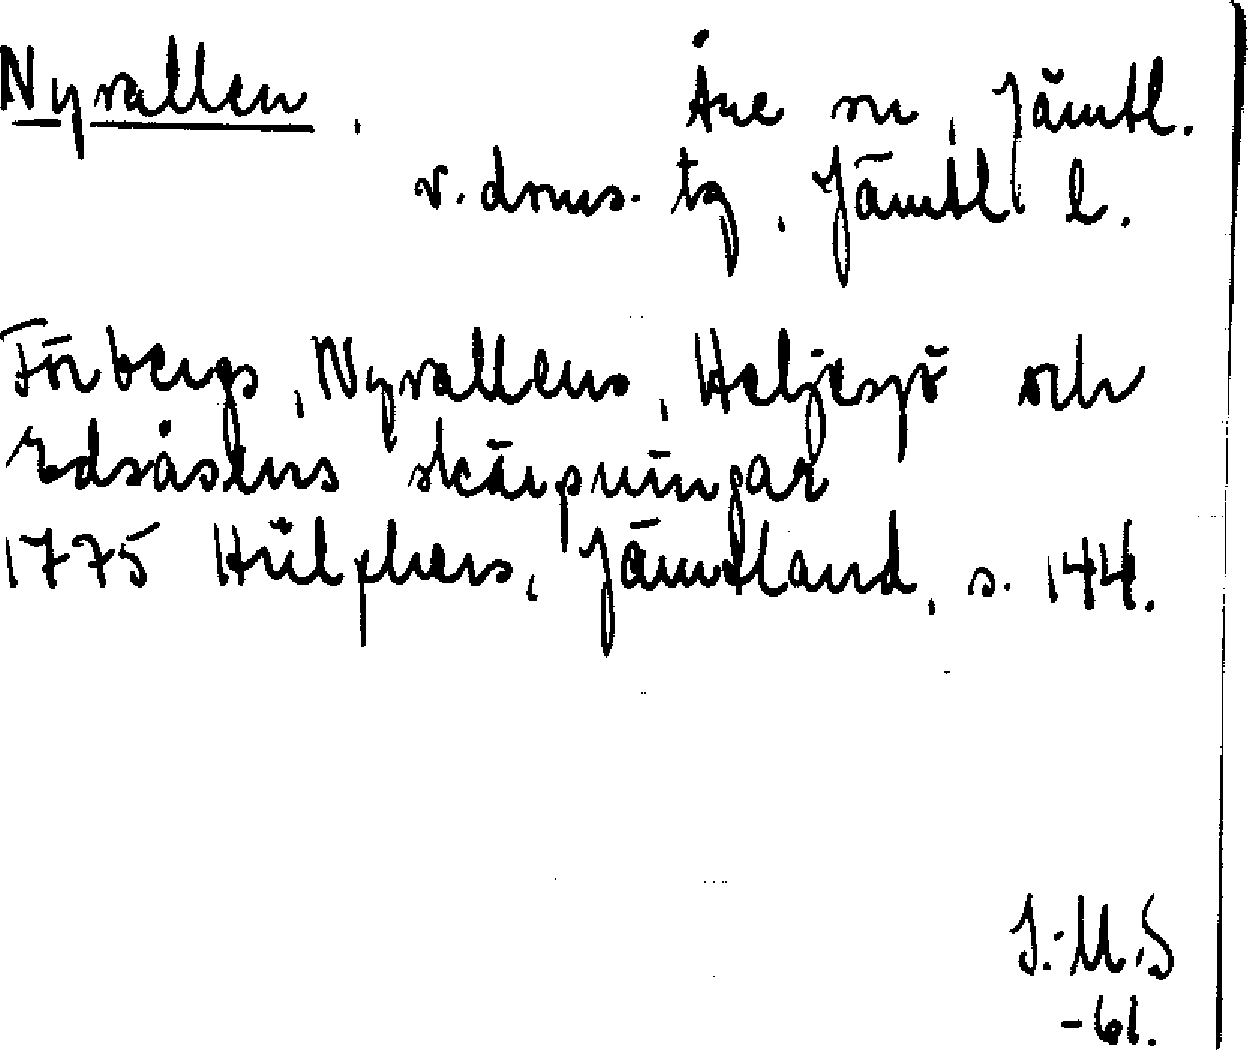 Nyvallen, Åre sn, Jämtl.
v. doms. tg, Jämtl l.
Förbergs, Nyvallens, Heljesjö och
Edsåsens skärpningar
1775 Hülphers, Jämtland, s. 144.
I.-M.S
-61.